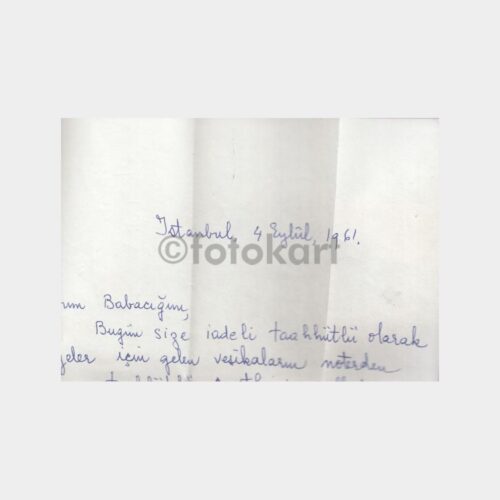 Istanbul, 4 Eylül, 1961.
©fotokart
rım Babacığım,
Bugün size iadeli taahhütlü olarak
jeler için gelen vesikaların noterden